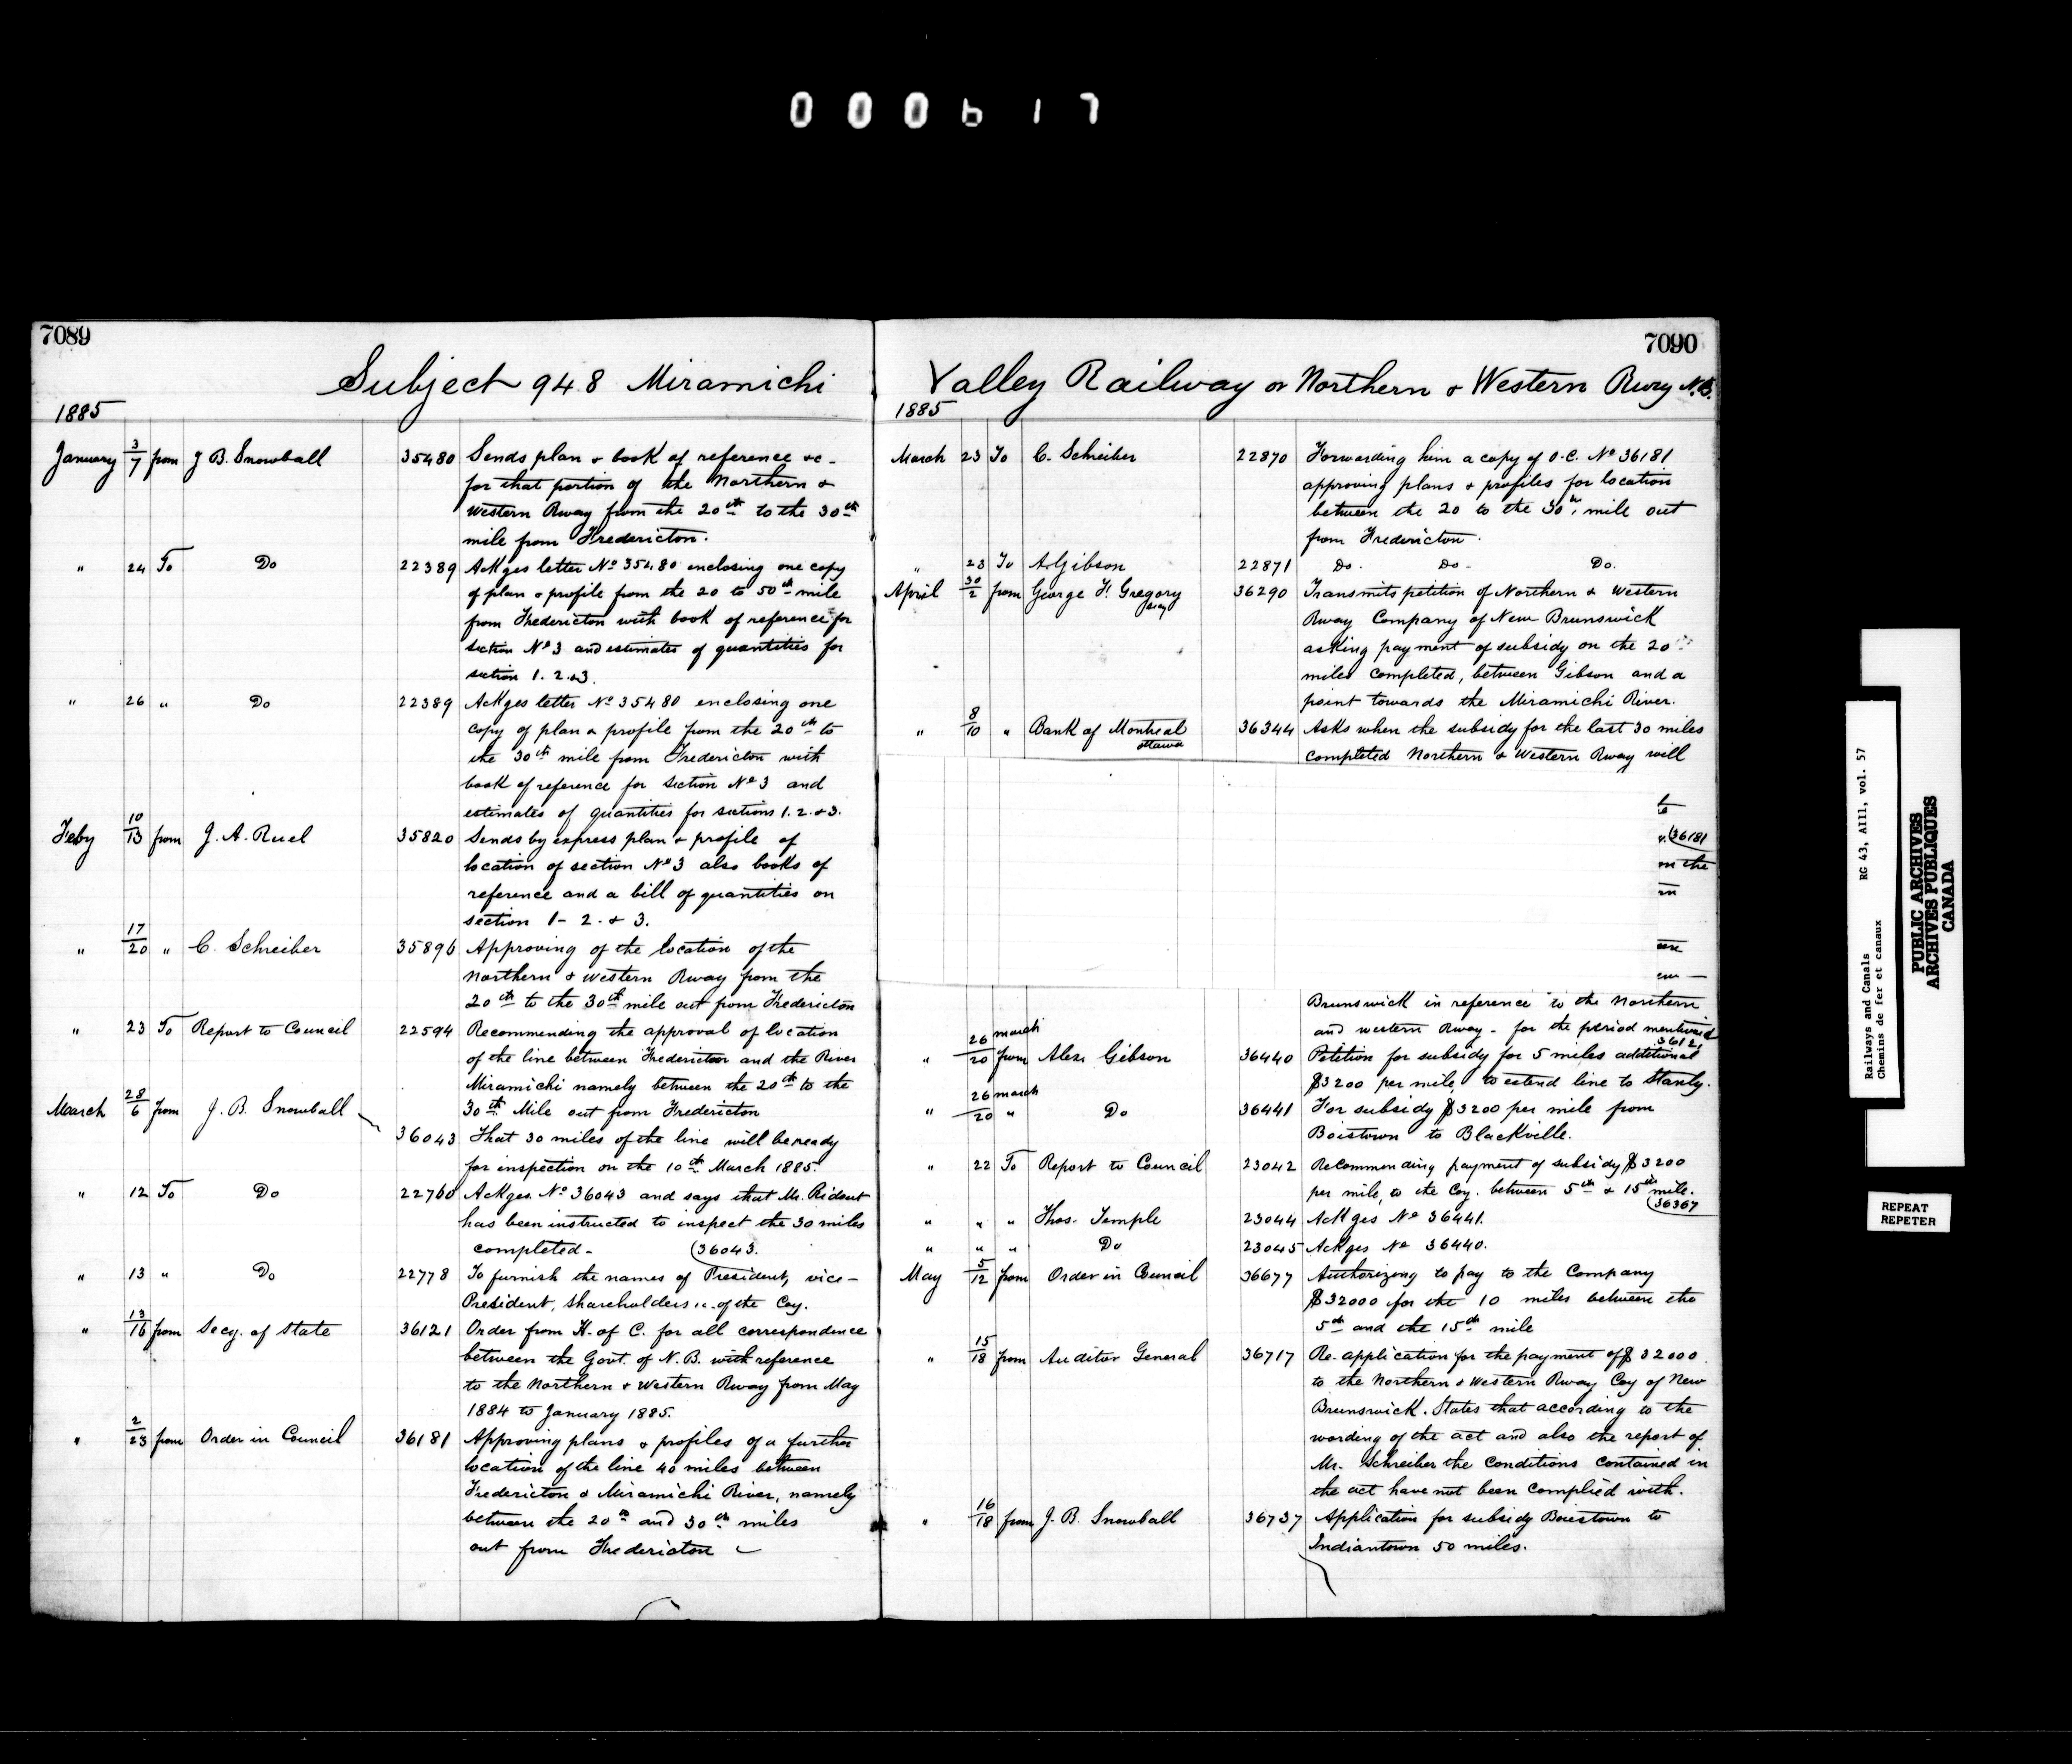 000617
7089
Subject 948 Miramichi
1885
January 3/7 from J B. Snowball 35480 Sends plan & book of reference &c-
for that portion of the Northern &
Western Rway from the 20th to the 30th
mile from Fredericton.
" 24 To Do 22389 Ackges letter No 35480 enclosing one copy
of plan & profile from the 20 to 50th mile
from Fredericton with book of reference for
section No 3 and estimates of quantities for
section 1. 2. &3.
" 26 " Do 22389 Ackges letter No 35480 enclosing one
copy of plan & profile from the 20th to
the 30th mile from Fredericton with
book of reference for section No 3 and
estimates of quantities for sections 1. 2. &3.
Feby 10/13 from J. A. Ruel 35820 Sends by express plan & profile of
location of section No 3 also books of
reference and a bill of quantities on
section 1- 2. & 3.
" 17/20 " C. Schreiber 35896 Approving of the location of the
Northern & Western Rway from the
20th to the 30th mile out from Fredericton
" 23 To Report to Council 22594 Recommending the approval of location
of the line between Fredericton and the River
Miramichi namely between the 20th to the
March 28/6 from J. B. Snowball 30th Mile out from Fredericton
36043 That 30 miles of the line will be ready
for inspection on the 10th March 1885.
" 12 To Do 22760 Ackges. No 36043 and says that Mr. Ridout
has been instructed to inspect the 30 miles
completed- (36043.
" 13 " Do 22778 To furnish the names of President, vice-
President, shareholders &c. of the Coy.
" 13/16 from Secy. of State 36121 Order from H. of C. for all correspondence
between the Govt. of N. B. with reference
to the Northern & Western Rway from May
1884 to January 1885.
" 2/23 from Order in Council 36181 Approving plans & profiles of a further
location of the line 40 miles between
Fredericton & Miramichi River, namely
between the 20th and 30th miles
out from Fredericton
7090
Valley Railway or Northern & Western Rwy N.B.
1885
March 23 To C. Schreiber 22870 Forwarding him a copy of O.C. No 36181
approving plans & profiles for location
between the 20 to the 30th mile out
from Fredericton.
" 23 To A. Gibson 22871 Do. Do. Do.
April 30/2 from George F. Gregory 36290 Transmits petition of Northern & Western
Rway Company of New Brunswick
asking payment of subsidy on the 20
miles completed, between Gibson and a
point towards the Miramichi River.
" 8/10 " Bank of Montreal 36344 Asks when the subsidy for the last 30 miles
Ottawa
completed Northern & Western Rway will
to
(36181
on the
Brunswick in reference to the Northern
and western Rway - for the period mentioned
" 26 march/20 from Alex. Gibson 36440 Petition for subsidy for 5 miles additional
$3200 per mile to extend line to Stanly.
" 26 march/20 " Do 36441 For subsidy $3200 per mile from
Boistown to Blackville.
" 22 To Report to Council 23042 Recommending payment of subsidy $3200
per mile, to the Coy. between 5th & 15th mile.
(36367
" " " Thos. Temple 23044 Ackges No 36441.
" " " Do 23045 Ackges No 36440.
May 5/12 from Order in Council 36677 Authorizing to pay to the Company
$32000 for the 10 miles between the
5th and the 15th mile
" 15/18 from Auditor General 36717 Re. application for the payment of $32000
to the Northern & Western Rway Coy of New
Brunswick. States that according to the
wording of the act and also the report of
Mr. Schreiber the conditions contained in
the act have not been complied with.
" 16/18 from J. B. Snowball 36737 Application for subsidy Boiestown to
Indiantown 50 miles.
Railways and Canals RG 43, AIII, vol. 57
Chemins de fer et canaux
PUBLIC ARCHIVES
ARCHIVES PUBLIQUES
CANADA
REPEAT
REPETER